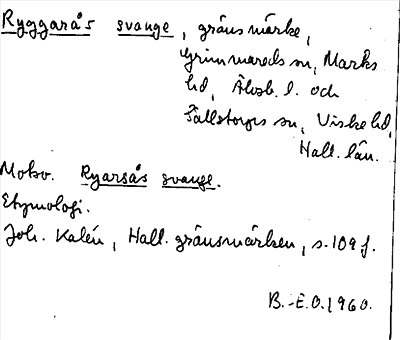 Ryggarås svange, gränsmärke,
Grimmareds sn, Marks
hd, Älvsb. l. och
Fällstorps sn, Viske hd,
Hall. län.
Motsv. Ryarsås svange.
Etymologi.
Joh. Kalén, Hall. gränsmärken, s. 109 f.
B.-E.O. 1960.